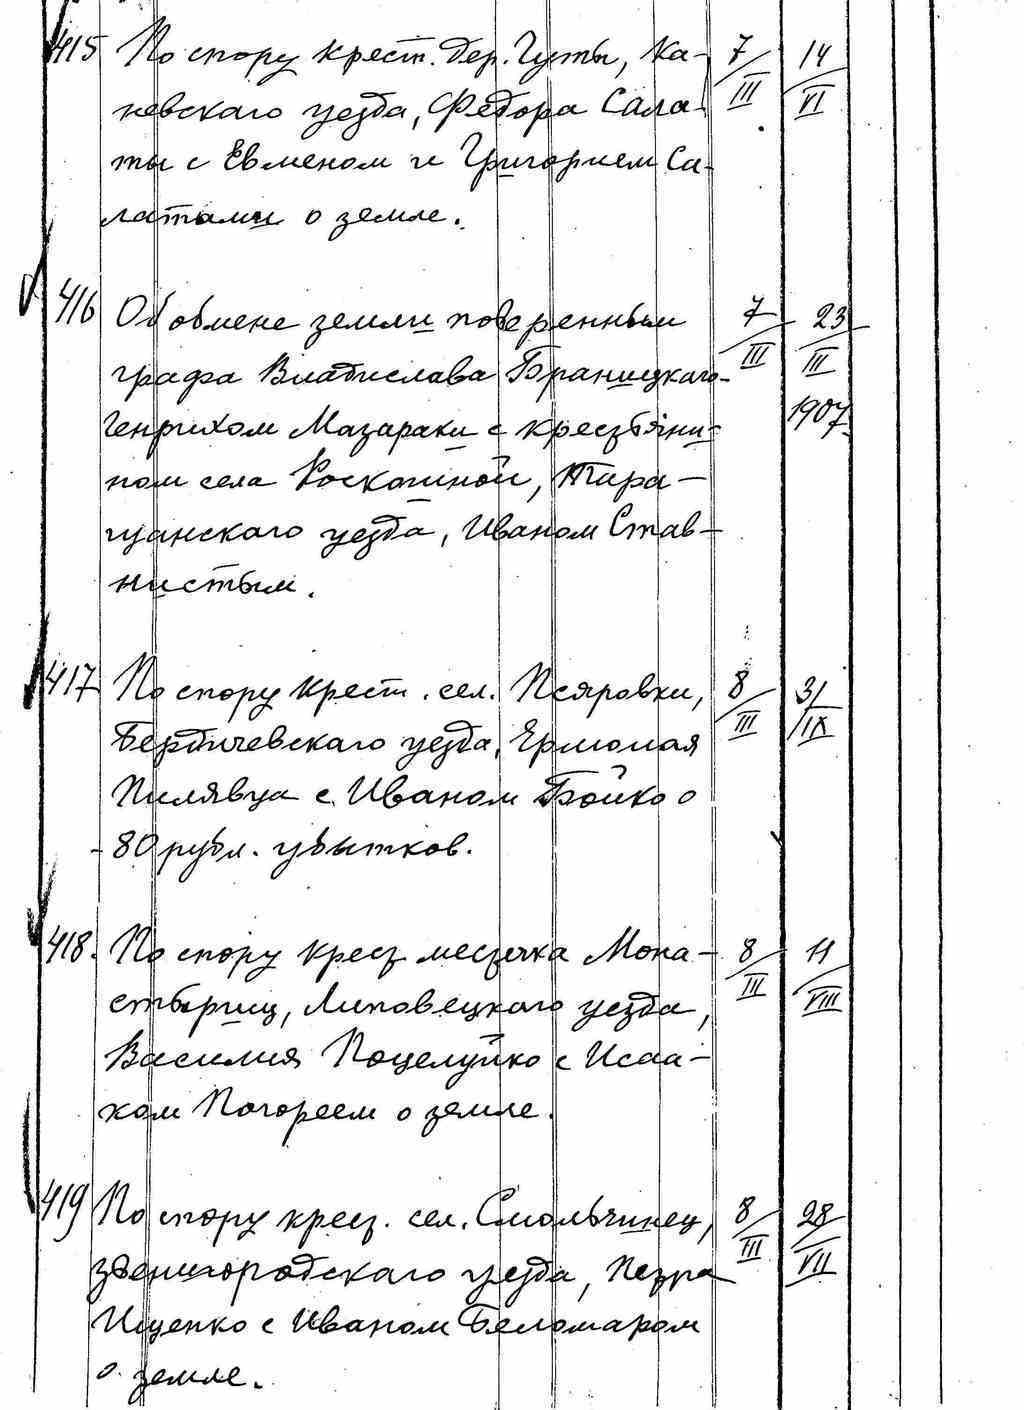 415 По спору крест. дер. Гуты, Ка- 7/III 14/VI
невскаго уезда, Федора Сала-
ты с Евменом и Григорием Са-
латами о земле.
416 Об обмене земли поверенным 7/III 23/III
графа Владислава Браницкаго 1907
Генрихом Мазараки с крестьяни-
ном села Роскошной, Тара-
щанскаго уезда, Иваном Став-
нистым.
417 По спору крест. сел. Псяровки, 8/III 31/IX
Бердичевскаго уезда, Ермолая
Пилявца с Иваном Бойко о
80 рубл. убытков.
418. По спору крест местечка Мона- 8/III 11/VIII
стырищ, Липовецкаго уезда,
Василия Поцелуйко с Исаа-
ком Погореем о земле.
419 По спору крест. сел. Смольчинец, 8/III 28/VII
звенигородскаго уезда, Петра
Ищенко с Иваном Беломаром
о земле.